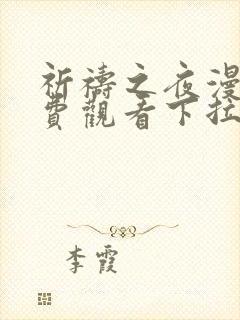 祈禱之夜漫
費觀看下拉
李霞